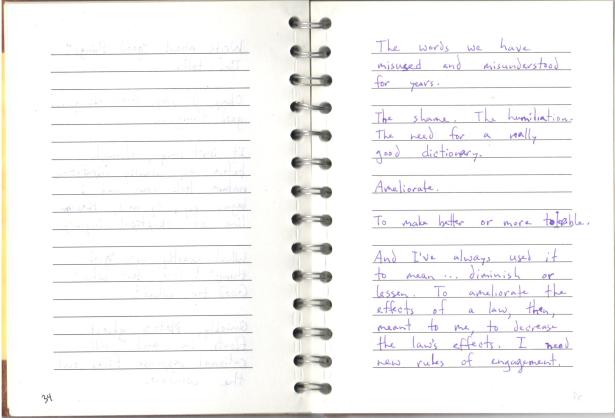 The words we have
misused and misunderstood
for years.
The shame. The humiliation.
The need for a really
good dictionary.
Ameliorate.
To make better or more tolerable.
And I've always used it
to mean ... diminish or
lessen. To ameliorate the
effects of a law, then,
meant to me, to decrease
the law's effects. I need
new rules of engagement.
34